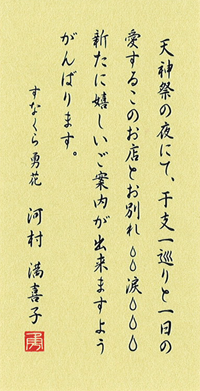 天神祭の夜にて、干支一巡りと一日の
愛するこのお店とお別れ💧💧涙💧💧💧
新たに嬉しいご案内が出来ますよう
がんばります。
すなくら勇花
河村 満喜子
勇